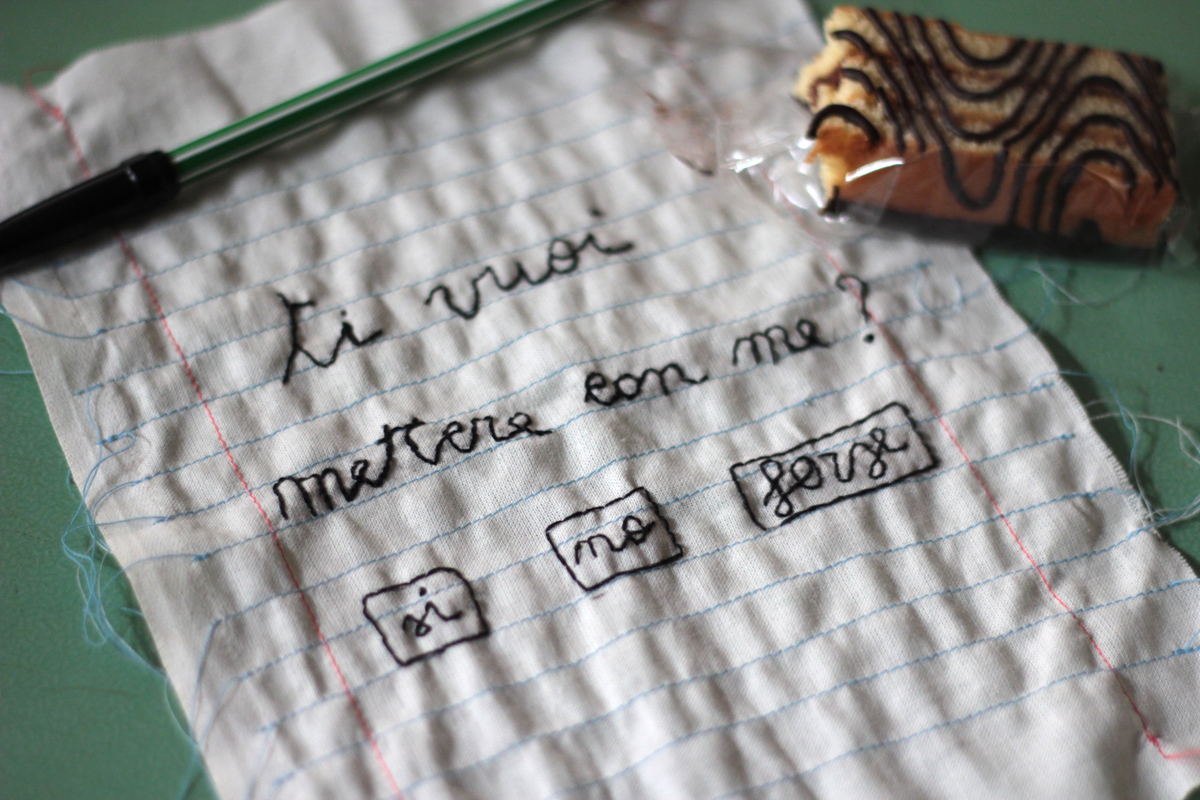 ti vuoi
mettere con me?
si no forse